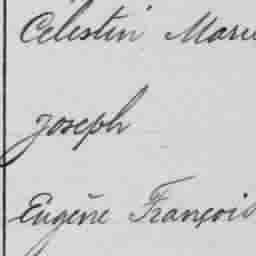 Célestin Marie
Joseph
Eugène François